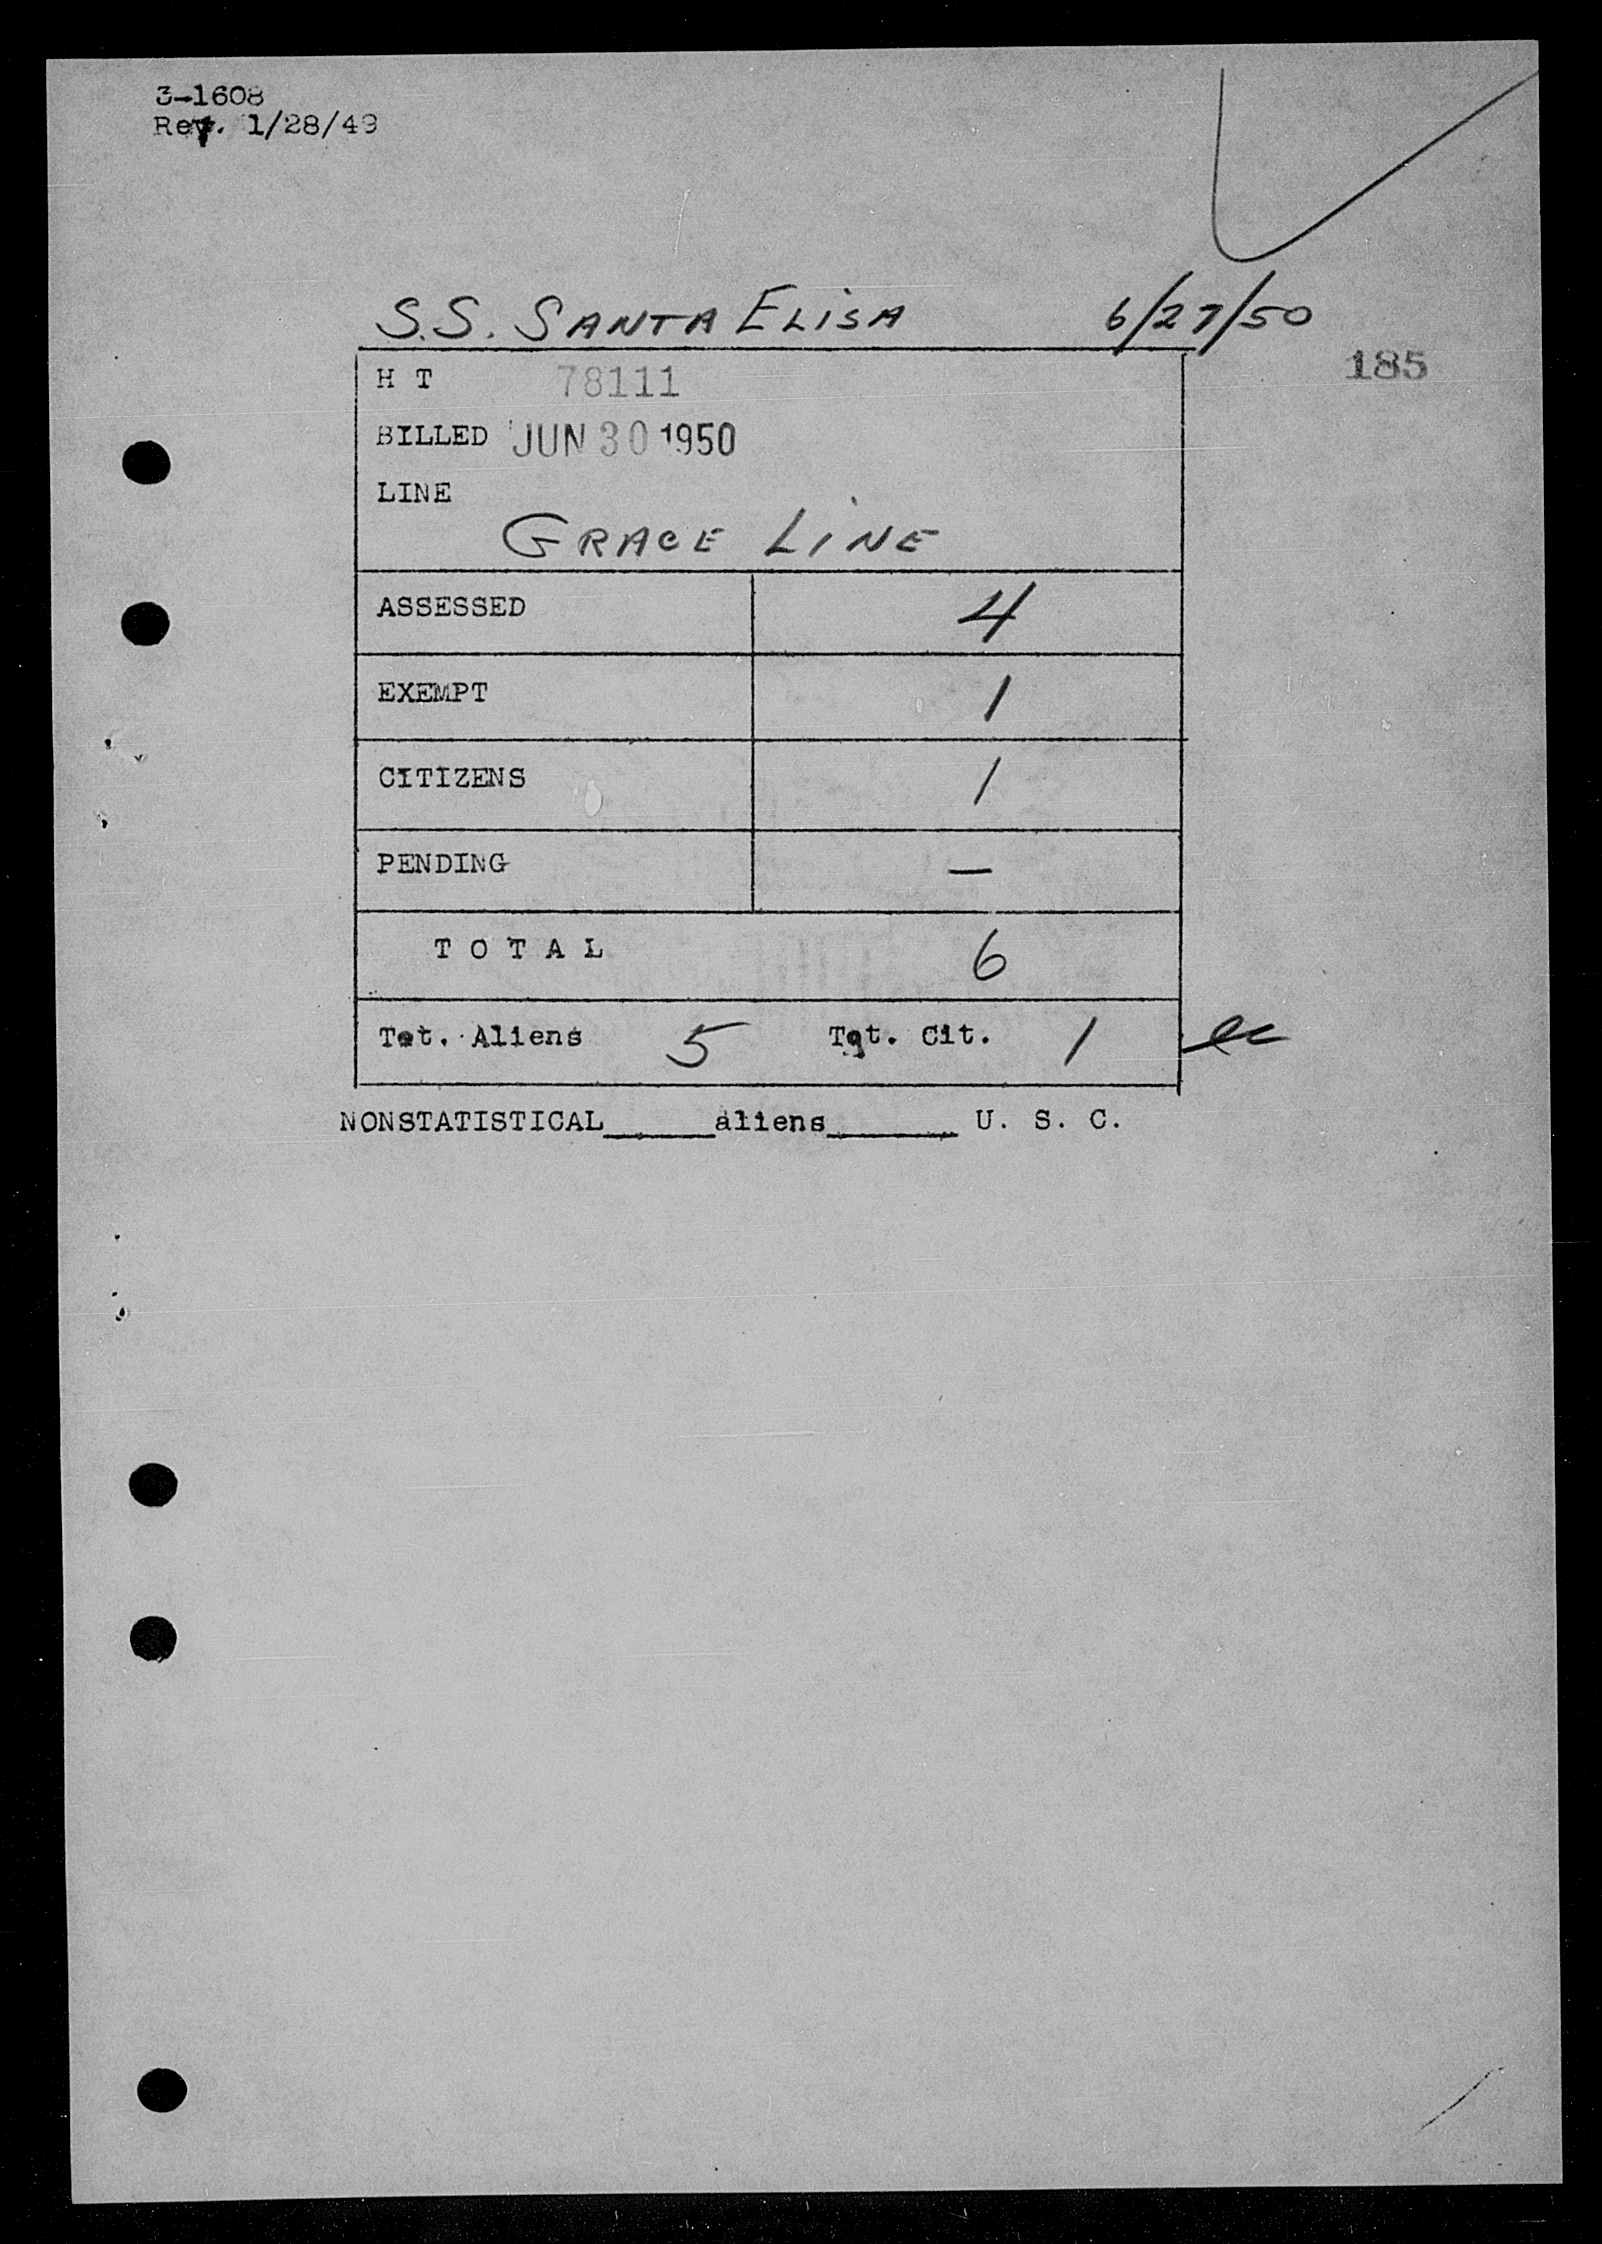 3-1608
Rev. 1/28/49
S.S. SANTA ELISA 6/27/50
185
H T 78111
BILLED JUN 30 1950
LINE
GRACE LINE
ASSESSED 4
EXEMPT 1
CITIZENS 1
PENDING —
T O T A L 6
Tot. Aliens 5 Tot. Cit. 1 ec
NONSTATISTICAL______aliens_______ U. S. C.